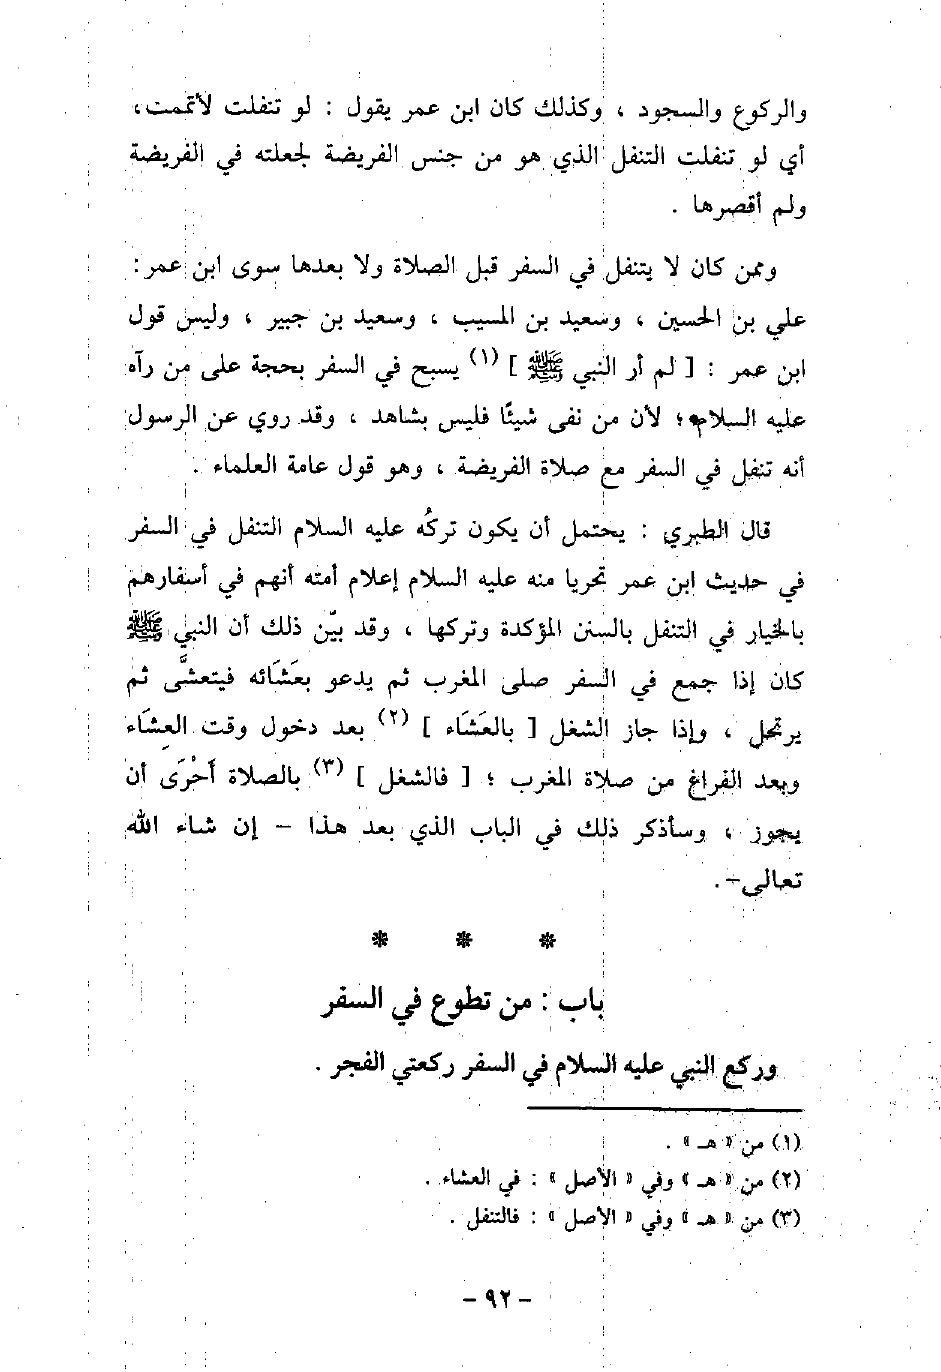 والركوع والسجود ، وكذلك كان ابن عمر يقول : لو تنفلت لأتممت،
أي لو تنفلت التنفل الذي هو من جنس الفريضة لجعلته في الفريضة
ولم أقصرها .
وممن كان لا يتنفل في السفر قبل الصلاة ولا بعدها سوى ابن عمر:
علي بن الحسين ، وسعيد بن المسيب ، وسعيد بن جبير ، وليس قول
ابن عمر : [ لم أر النبي ﷺ ] (١) يسبح في السفر بحجة على من رآه
عليه السلام؛ لأن من نفى شيئًا فليس بشاهد ، وقد روي عن الرسول
أنه تنفل في السفر مع صلاة الفريضة ، وهو قول عامة العلماء .
قال الطبري : يحتمل أن يكون تركُه عليه السلام التنفل في السفر
في حديث ابن عمر تحريا منه عليه السلام إعلام أمته أنهم في أسفارهم
بالخيار في التنفل بالسنن المؤكدة وتركها ، وقد بيّن ذلك أن النبي ﷺ
كان إذا جمع في السفر صلى المغرب ثم يدعو بعَشَائه فيتعشَّى ثم
يرتحل ، وإذا جاز الشغل [ بالعَشَاء ] (٢) بعد دخول وقت العِشَاء
وبعد الفراغ من صلاة المغرب ؛ [ فالشغل ] (٣) بالصلاة أَحْرَى أن
يجوز ، وسأذكر ذلك في الباب الذي بعد هذا – إن شاء الله
تعالى–.
* * *
باب : من تطوع في السفر
وركع النبي عليه السلام في السفر ركعتي الفجر .
(١) من « هـ » .
(٢) من « هـ » وفي « الأصل » : في العشاء .
(٣) من « هـ » وفي « الأصل » : فالتنفل .
- ٩٢ -